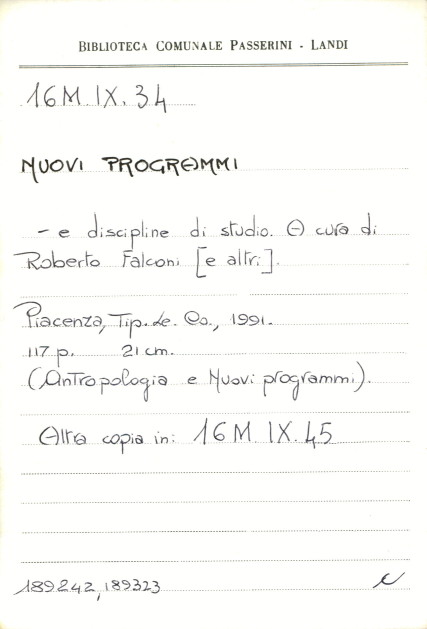 BIBLIOTECA COMUNALE PASSERINI - LANDI
16M.IX.34
NUOVI PROGRAMMI
- e discipline di studio. A cura di
Roberto Falconi [e altri].
Piacenza, Tip.Le.Co., 1991.
117 p. 21 cm.
(Antropologia e Nuovi programmi).
Altra copia in: 16M.IX.45
189242, 189323